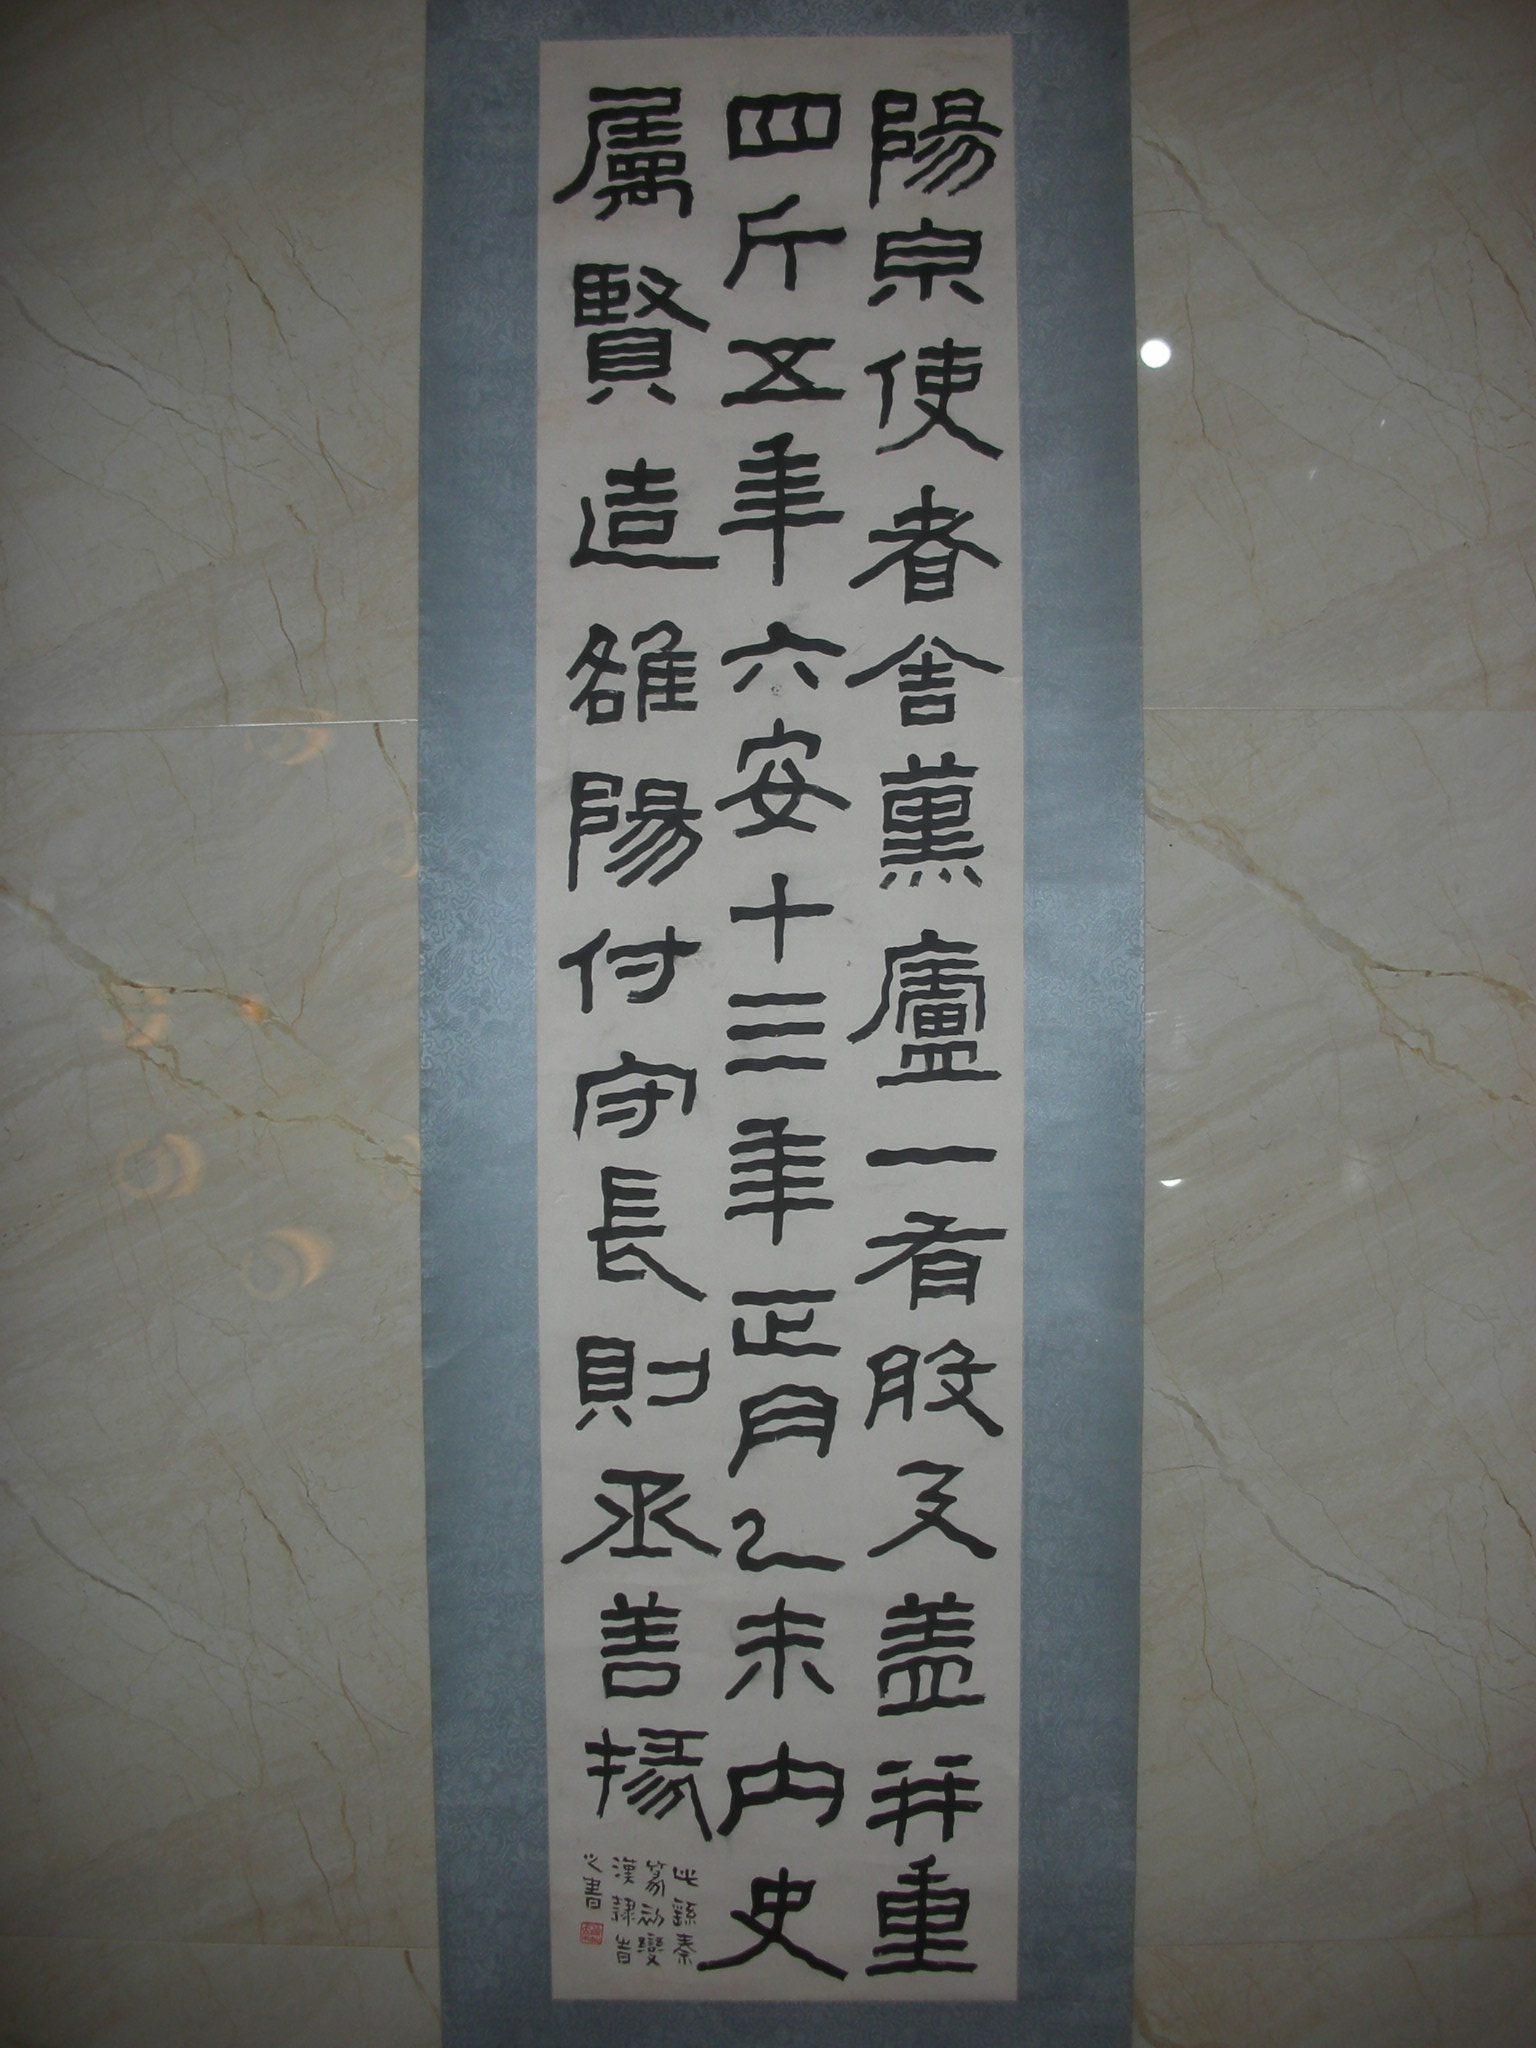 陽泉使者舍薰廬一者股又盖并重
四斤五年六安十三年正月乙未內史
屬賢造雒陽付守長則丞善掾
此繇秦
篆初變
漢隸者
之書